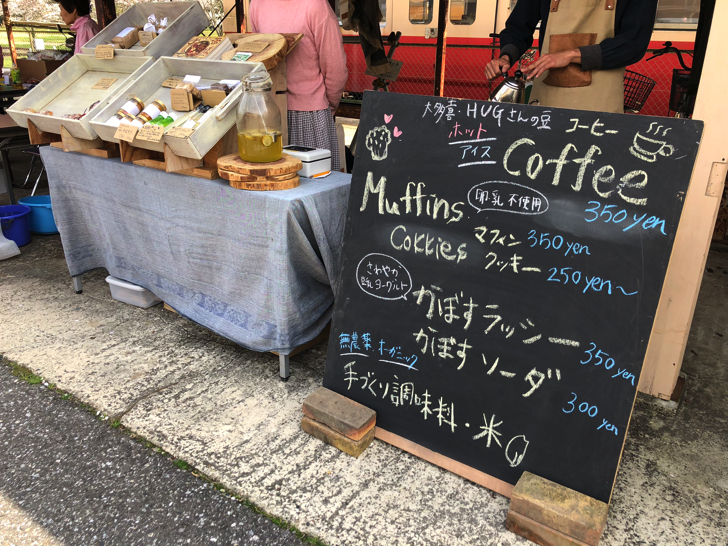 大多喜・HUGさんの豆
コーヒー
ホット
アイス
Coffee
350yen
Muffins
卵・乳 不使用
マフィン 350yen
Cokkies
クッキー 250yen〜
さわやか
豆乳ヨーグルト
かぼすラッシー 350yen
かぼすソーダ 300yen
無農薬・オーガニック
手づくり調味料・米